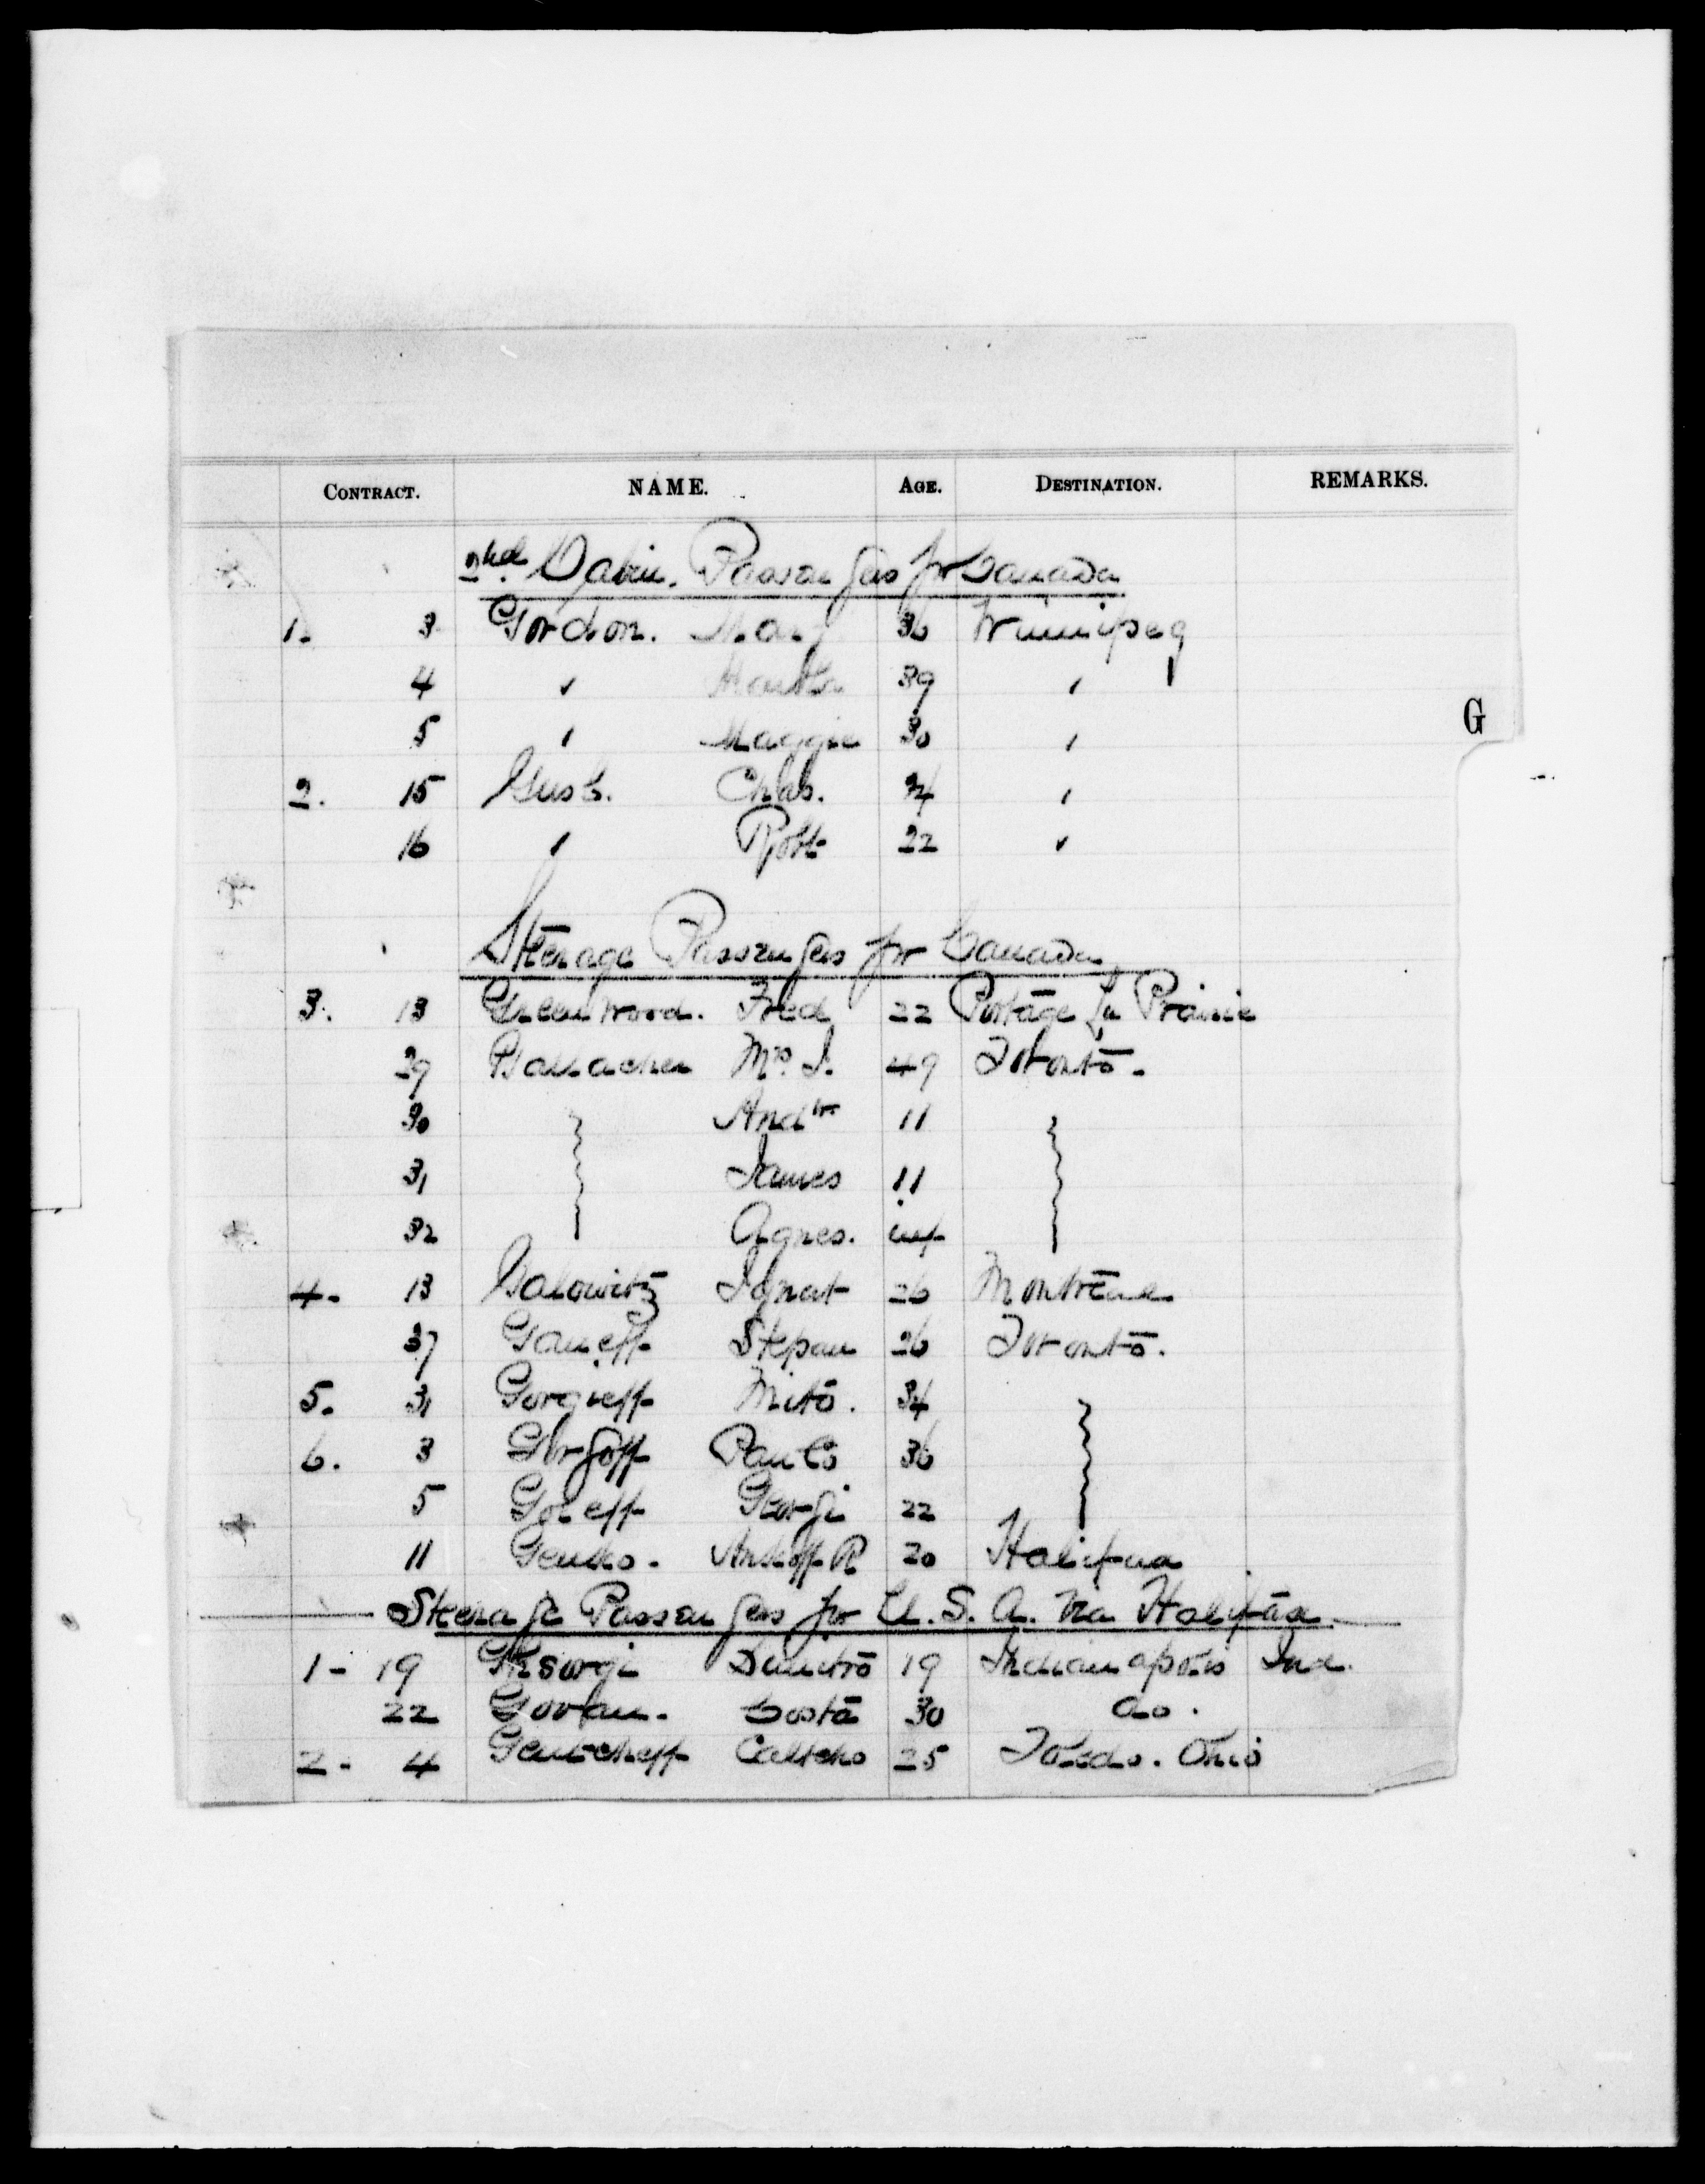 CONTRACT. NAME. AGE. DESTINATION. REMARKS.
2nd Cabin. Passengers for Canada
1. 3 Gordon. Mary 36 Winnipeg
4 " Martha 39 "
5 " Maggie 30 "
G
2. 15 Chas. 24 "
16 " Robt 22 "
Steerage Passengers for Canada
3. 13 Greenwood. Fred 22 Portage La Prairie
29 Gallacher Mrs J. 49 Toronto.
30 Andw 11
31 James 11
32 Agnes. inf
4. 13 Galowitz Ignat 26 Montreal
37 Ganeff Stepan 26 Toronto.
5. 31 Gorgieff Mito. 34
6. 3 Gorgoff 36
5 Goleff Georgi 22
11 Genko. R 20 Halifax
Steerage Passengers for U.S.A. via Halifax
1 - 19 Dimitro 19 Indianapolis Ind.
22 Costa 30 do.
2 - 4 Gentcheff 25 Toledo. Ohio